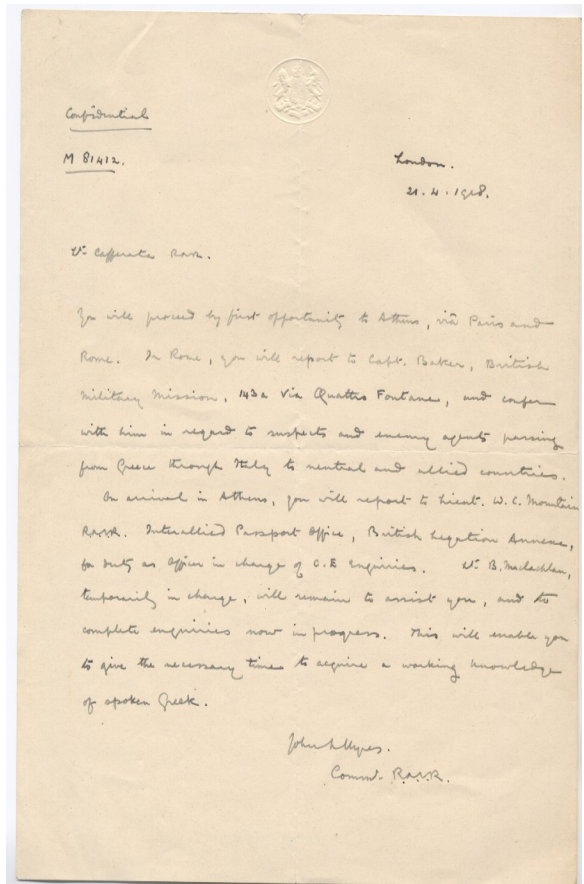 Confidential
M 81412.
London.
21.4.1918.
Lt. Cafferata R.N.V.R.
You will proceed by first opportunity to Athens, viâ Paris and
Rome. In Rome, you will report to Capt. Baker, British
Military Mission, 143a Via Quattro Fontane, and confer
with him in regard to suspects and enemy agents passing
from Greece through Italy to neutral and allied countries.
On arrival in Athens, you will report to Lieut. W.C. Mountain
R.N.V.R. Interallied Passport Office, British Legation Annexe,
for duty as Officer in charge of C.E. Enquiries. Lt. B. Maclachlan,
temporarily in charge, will remain to assist you, and to
complete enquiries now in progress. This will enable you
to give the necessary time to acquire a working knowledge
of spoken Greek.
John L Myres.
Commr. R.N.V.R.